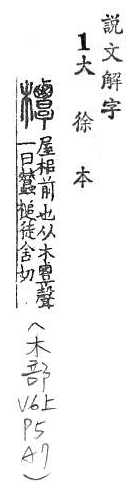 説文解字
1大徐本
橝屋梠前也从木覃聲
一曰蠶槌徒含切
(木部
V6上
P5
A7)